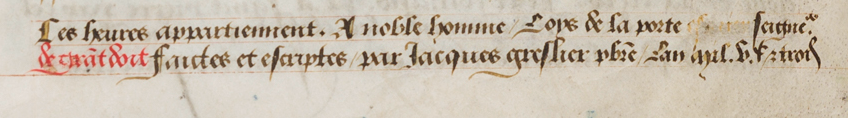 Ces heures appartiennent. A noble homme / Loys de la porte seigne.
faictes et escriptes / par Jacques greslier pbre / Lan mil. v.